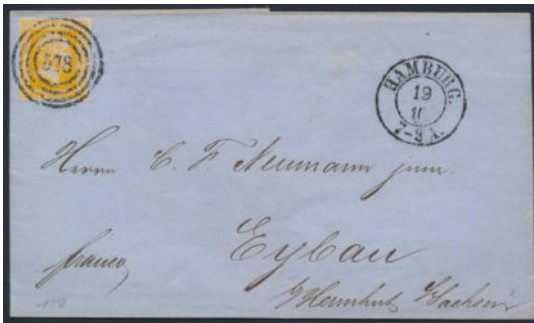 578
HAMBURG.
19
10
7-8 A.
Herrn C. F. Neumann jun.
Eybau
franco
Herrnhut Sachsen